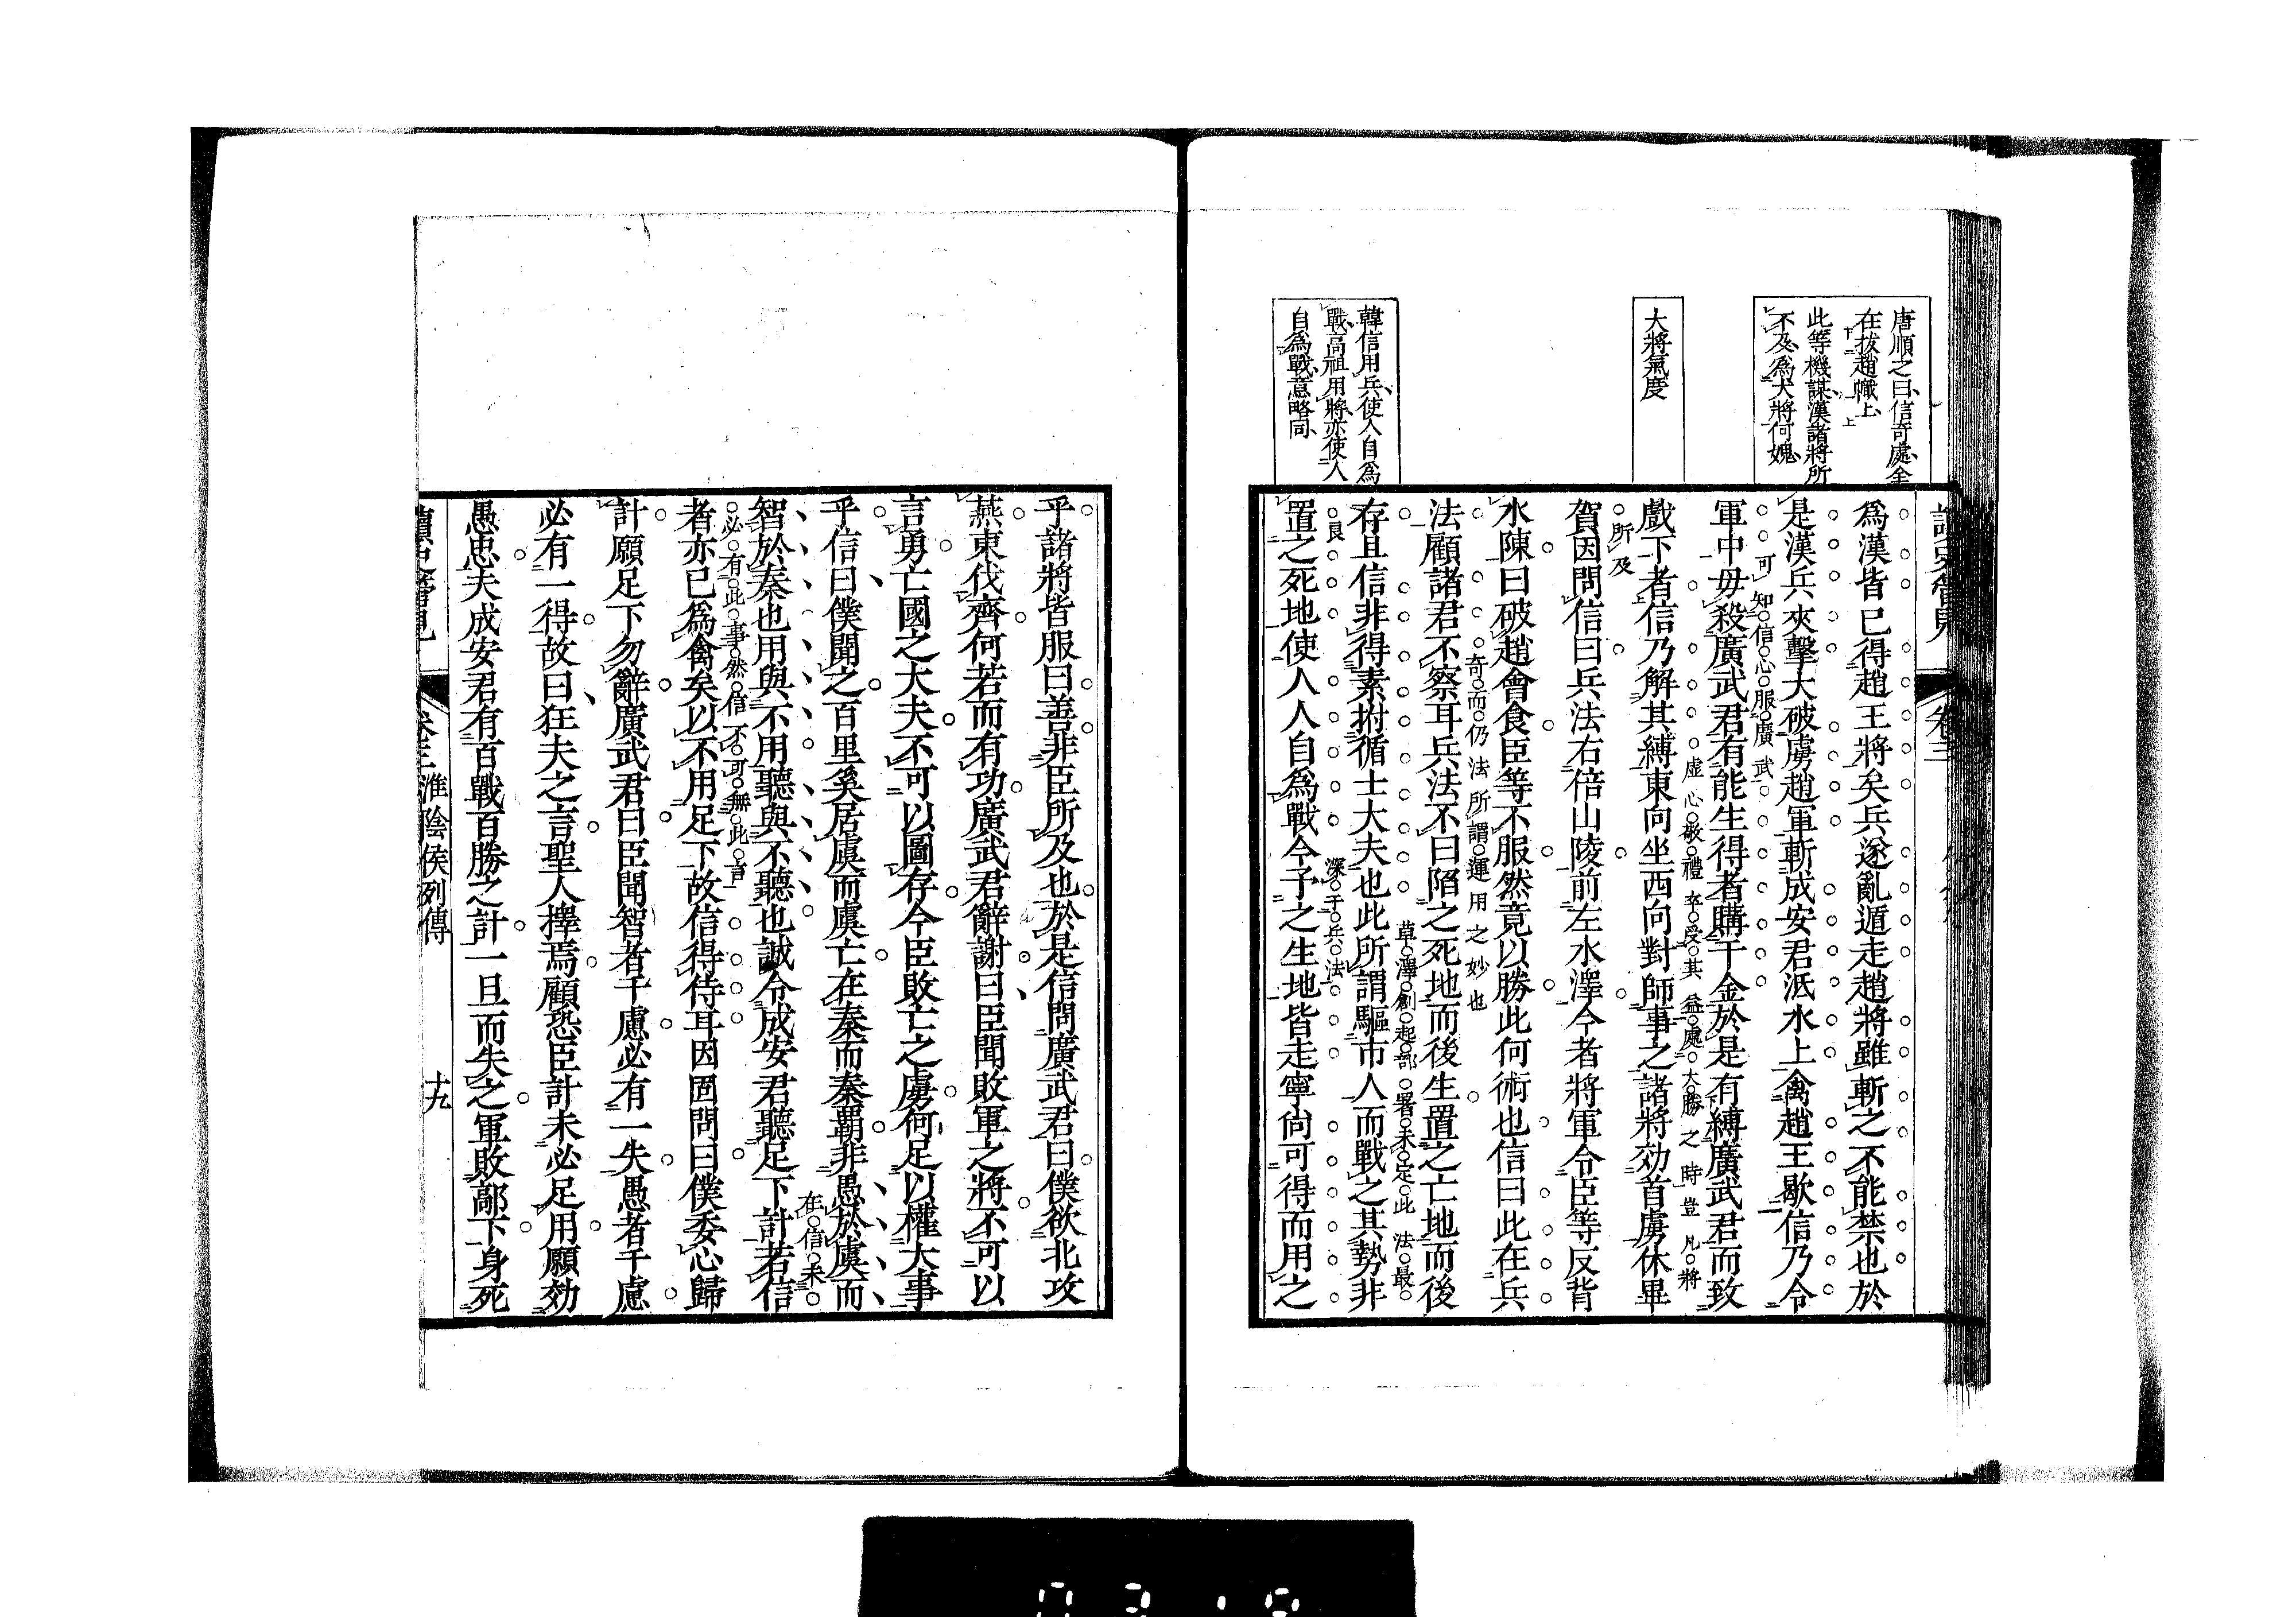 唐順之曰信奇處全
在拔趙幟上
此等機謀漢諸將所
不及爲大將何媿
大將氣度
韓信用兵使人自爲
戰高祖用將亦使人
自爲戰意略同
卷三
爲漢皆已得趙王將矣兵遂亂遁走趙將雖斬之不能禁也於
是漢兵夾擊大破虜趙軍斬成安君泜水上禽趙王歇信乃令
可知信心服廣武
軍中毋殺廣武君有能生得者購千金於是有縛廣武君而致
虛心敬禮卒受其益處大勝之時豈凡將
戲下者信乃解其縛東向坐西向對師事之諸將効首虜休畢
所及
賀因問信曰兵法右倍山陵前左水澤今者將軍令臣等反背
水陳曰破趙會食臣等不服然竟以勝此何術也信曰此在兵
奇而仍法所謂運用之妙也
法顧諸君不察耳兵法不曰陷之死地而後生置之亡地而後
草澤創起部署未定此法最
存且信非得素拊循士大夫也此所謂驅市人而戰之其勢非
良 深于兵法
置之死地使人人自爲戰今予之生地皆走寧尙可得而用之
乎諸將皆服曰善非臣所及也於是信問廣武君曰僕欲北攻
燕東伐齊何若而有功廣武君辭謝曰臣聞敗軍之將不可以
言勇亡國之大夫不可以圖存今臣敗亡之虜何足以權大事
乎信曰僕聞之百里奚居虞而虞亡在秦而秦覇非愚於虞而
在信未
智於秦也用與不用聽與不聽也誠令成安君聽足下計若信
必有此事然信不可無此言
者亦已爲禽矣以不用足下故信得侍耳因固問曰僕委心歸
計願足下勿辭廣武君曰臣聞智者千慮必有一失愚者千慮
必有一得故曰狂夫之言聖人擇焉顧恐臣計未必足用願効
愚忠夫成安君有百戰百勝之計一旦而失之軍敗鄗下身死
讀史管見 卷三 淮陰侯列傳 十九